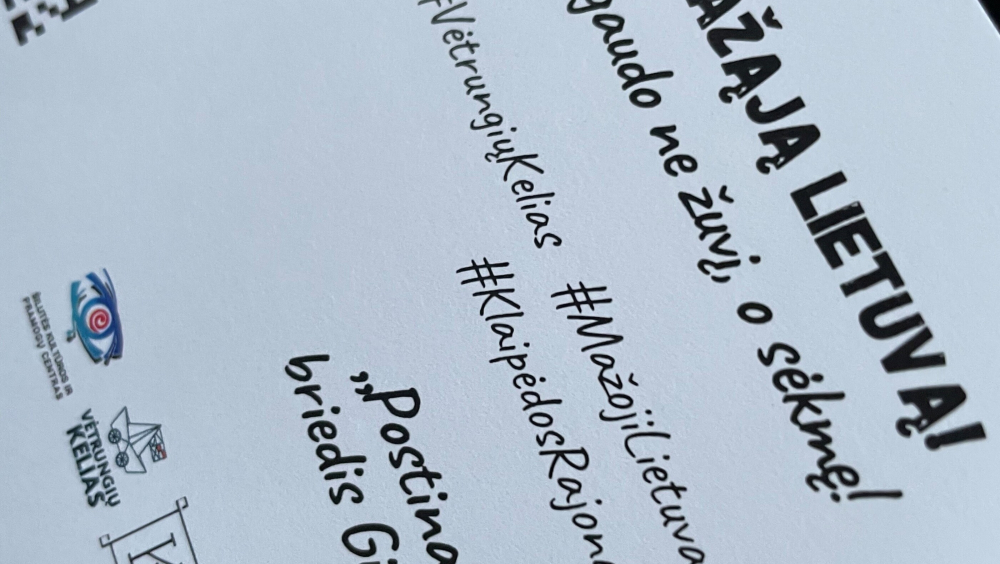 AŽĄJĄ LIETUVĄ!
gaudo ne žuvį, o sėkmę!
#VėtrungiųKelias #MažojiLietuva
#KlaipėdosRajon
„Postina
briedis Gi
ŠILUTĖS KULTŪROS IR
PRAMOGŲ CENTRAS
VĖTRUNGIŲ
KELIAS